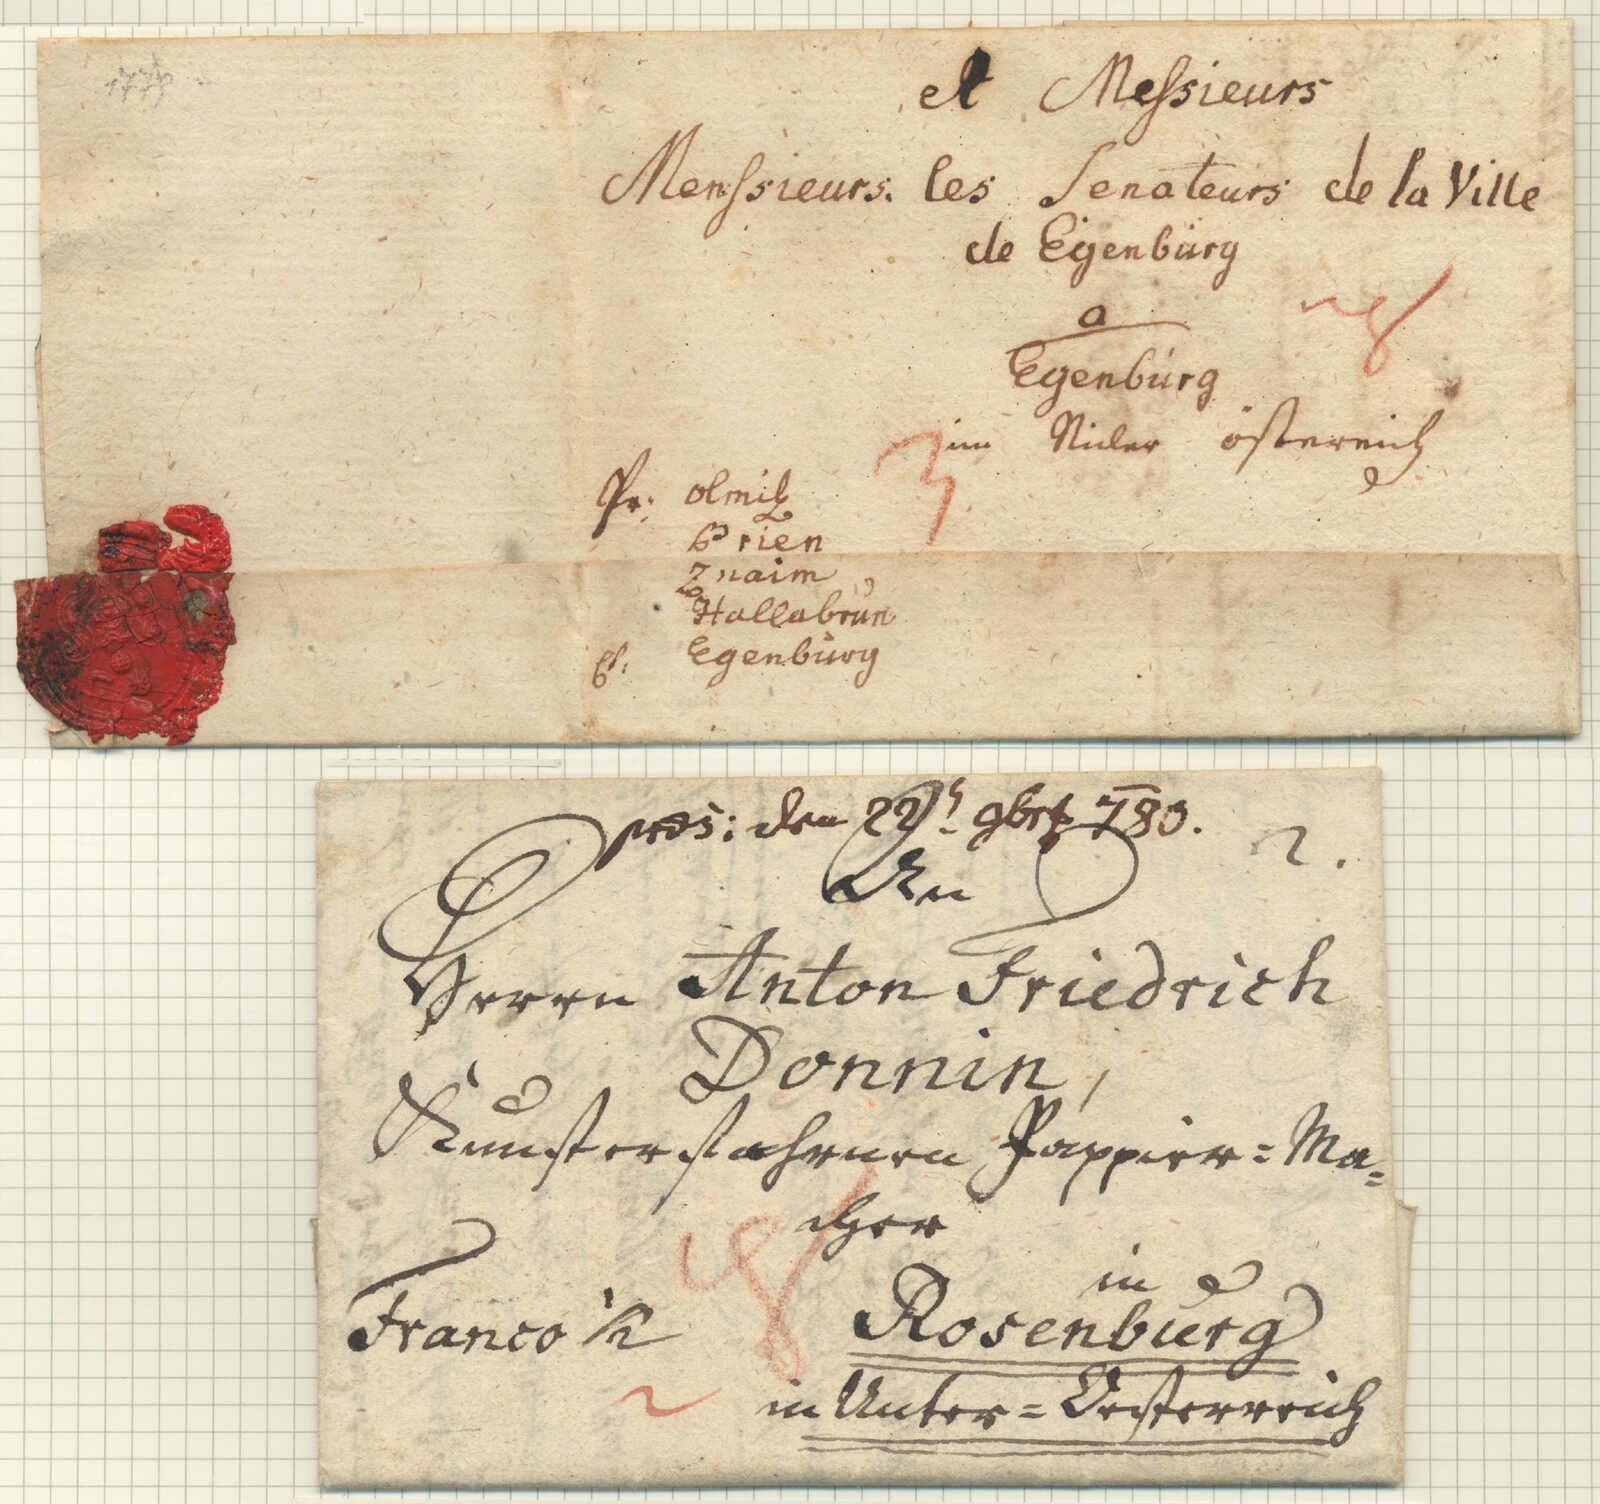 et Messieurs
Menssieurs. les Senateurs de la Ville
de Egenburg
a
Egenburg
im Nider österreich
Pr: Olmitz
Brien
Znaim
Hollabrun
Egenburg
præs: den 22t 9brs 783.
2.
An
Herrn Anton Friedrich
Donnin,
Kunsterfahrnen Pappier=Ma=
cher
in
Franco
Rosenburg
in Unter=Oesterreich